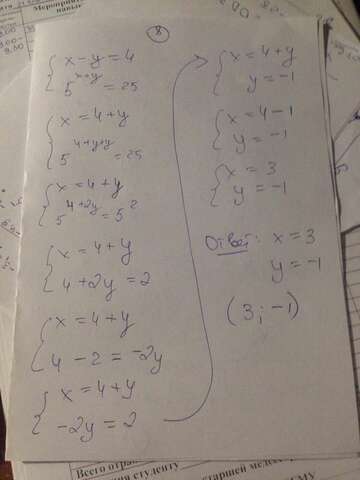 8
{ x - y = 4
5^{x+y} = 25
{ x = 4 + y
5^{4+y+y} = 25
{ x = 4 + y
5^{4+2y} = 5^2
{ x = 4 + y
4 + 2y = 2
{ x = 4 + y
4 - 2 = -2y
{ x = 4 + y
-2y = 2
{ x = 4 + y
y = -1
{ x = 4 - 1
y = -1
{ x = 3
y = -1
Ответ: x = 3
y = -1
(3; -1)
Всего
студенту
старшей